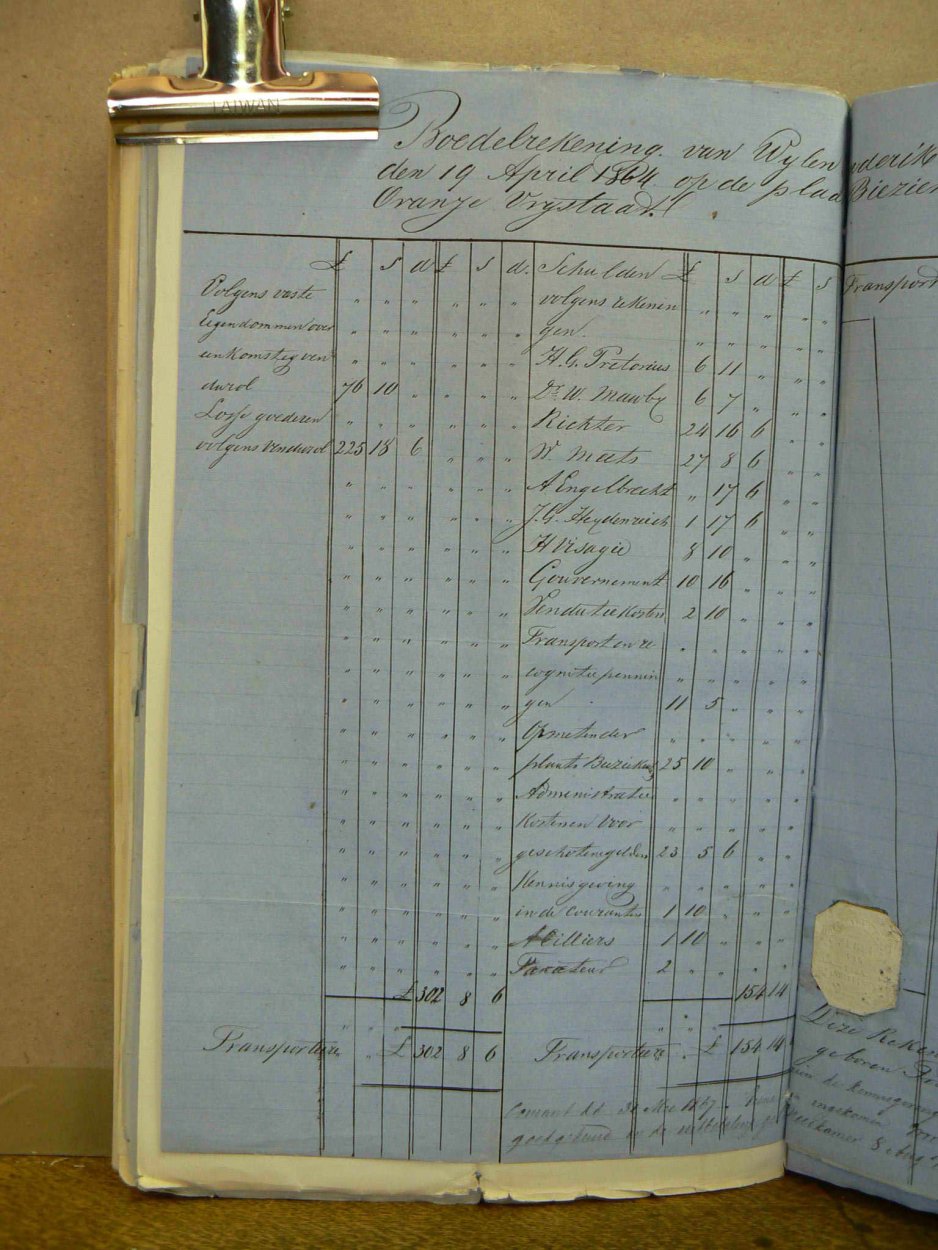 TAIWAN
Boedelrekening van Wylen
den 19 April 1864 op de plaa
Oranje Vrystaat.
£ s d £ s d. Schulden £ s d £ s
Volgens vaste " " " " " " volgens rekenen " " " " "
Eigendommen over " " " " " " gen. " " " " "
eenkomstig ven " " " " " " H. G. Pretorius 6 11 " " "
durol 76 10 " " " " Dr. W. Mawby 6 7 " " "
Losse goederen " " " " " " Richter 24 16 6 " "
volgens Vendurol 225 18 6 " " " Mats 27 8 6 " "
" " " " " " A Engelbrecht " 17 6 " "
" " " " " " J. G. Heydenreich 1 17 6 " "
" " " " " " H Visagie 8 10 " " "
" " " " " " Gouvernement 10 16 " " "
" " " " " " Vendutiekosten 2 10 " " "
" " " " " " Transport en re " " " " "
" " " " " " cognitie pennin " " " " "
" " " " " " gen 11 5 " " "
" " " " " " Opmeten der " " " " "
" " " " " " plaats 25 10 " " "
" " " " " " Administratie " " " " "
" " " " " " Kosten en Voor " " " " "
" " " " " " geschoten gelden 23 5 6 " "
" " " " " " Kennisgeving " " " " "
" " " " " " in de Courante 1 10 " " "
" " " " " " A Cilliers 1 10 " " "
" " " " " " Taxateur 2 " " " "
£ 302 8 6 154 14
" " " " " "
Transporteere " £ 302 8 6 Transporteere " £ 154 14
1867
goedgekeurd
derik
Biezien
Transport
Deze Reken
geboren
de kennisgeving
8 Aug